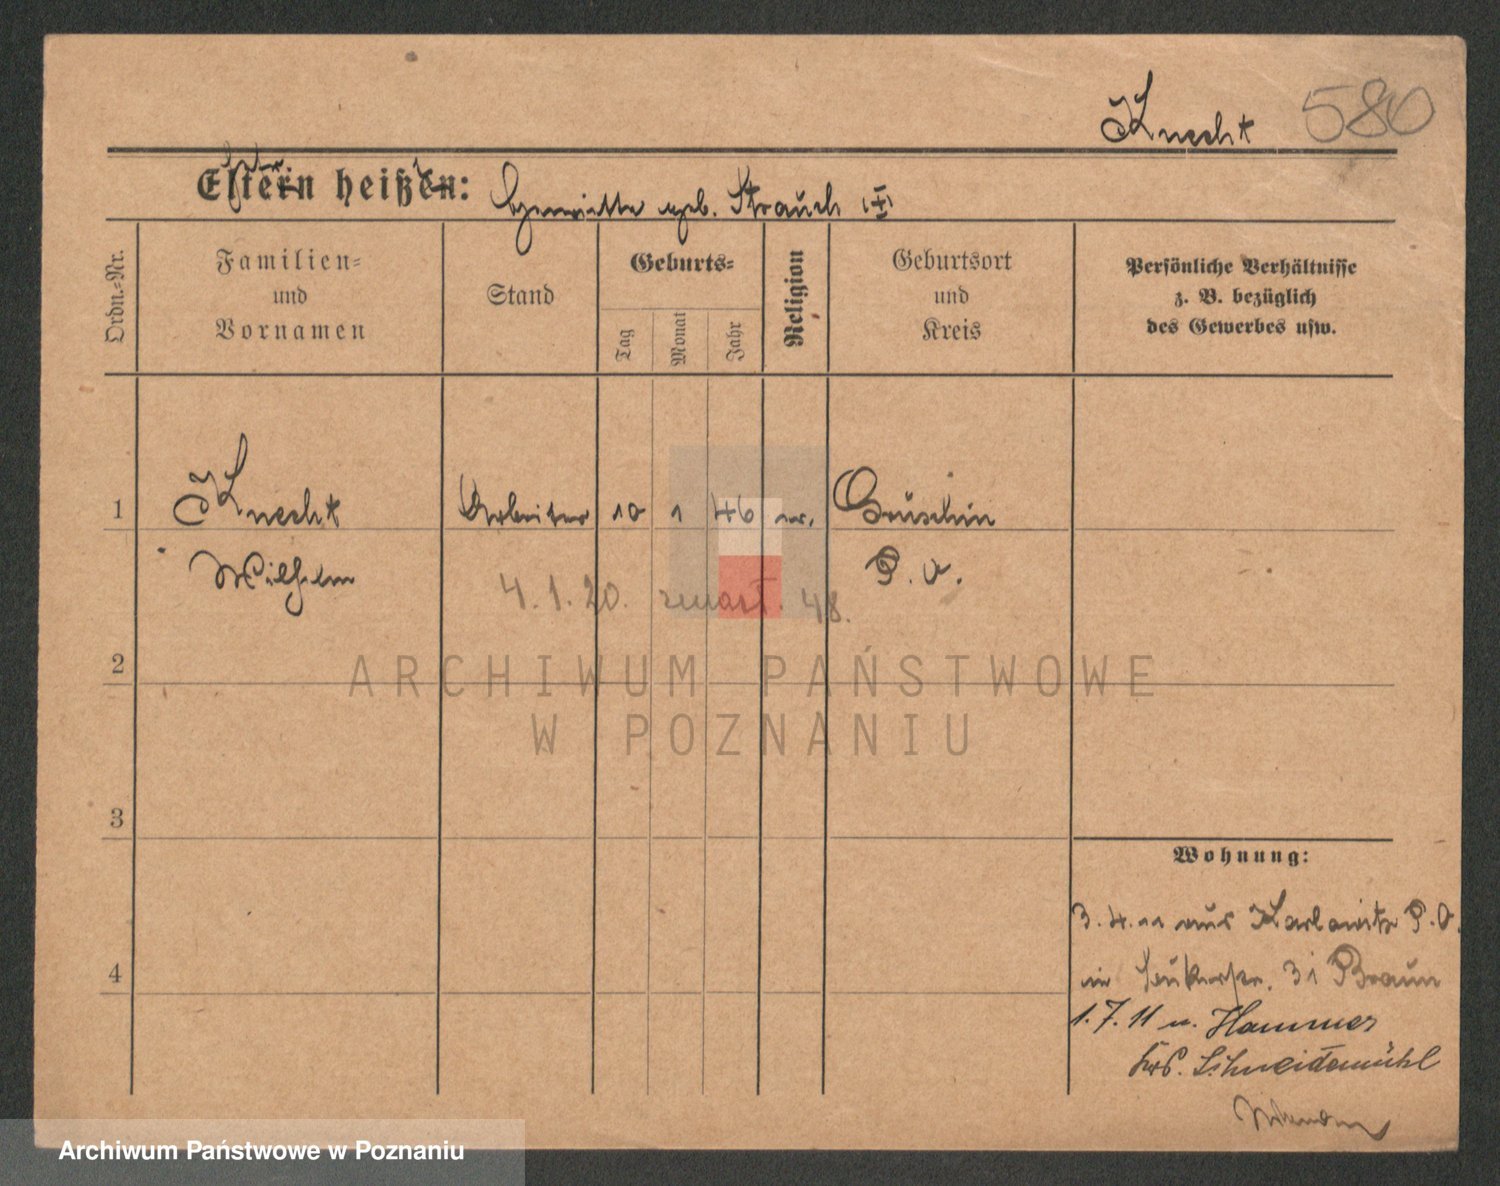 Knecht 580
Eltern heißen: Henriette geb. Strauch
Ordn.-Nr.
Familien-
und
Vornamen
Stand
Geburts-
Tag
Monat
Jahr
Religion
Geburtsort
und
Kreis
Persönliche Verhältnisse
z. B. bezüglich
des Gewerbes usw.
1 Knecht Arbeiter 10 1 46 ev.
Wilhelm P. O.
4.1.20. 48.
2
ARCHIWUM PAŃSTWOWE
W POZNANIU
3
Wohnung:
3.4.11 aus Karlowitz P.O.
in 31 Braun
4
1.7.11 n. Hammer
Krs. Schneidemühl
Archiwum Państwowe w Poznaniu